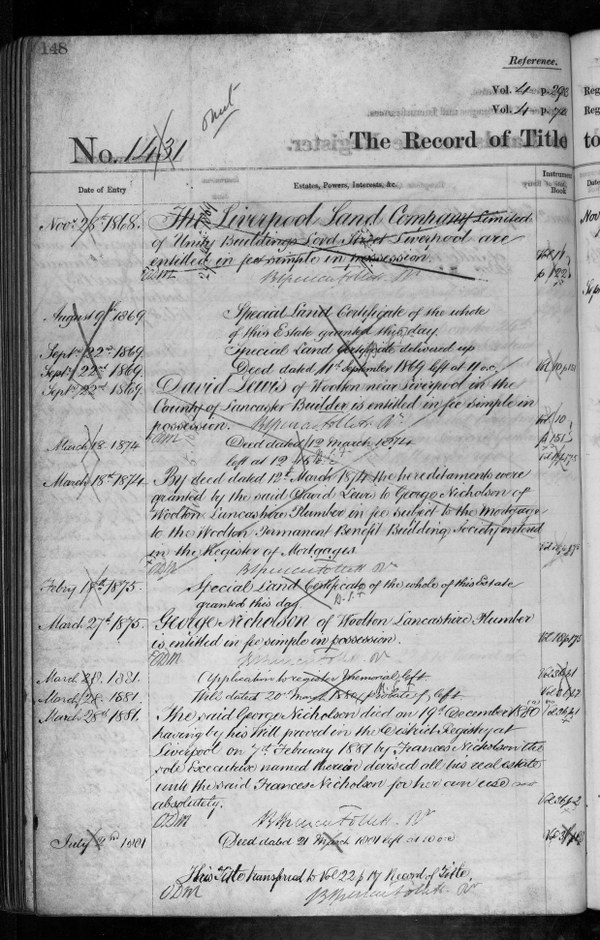 148
Reference.
Vol. 4 p.
Vol. 4 p.
No. 1431
The Record of Title to
Date of Entry
Estates, Powers, Interests, &c.
Instrument Book
Novr 28th 1868. The Liverpool Land Company Limited
of Unity Buildings Lord Street Liverpool are
entitled in fee simple in possession.
ODM BSpencerFollett Rr
August 9th 1869 Special Land Certificate of the whole
of this Estate granted this day.
Septr 22nd 1869 Special Land Certificate delivered up
Septr 22nd 1869. Deed dated 11th September 1869 left at 11 oc/
Septr 22nd 1869. David Lewis of Woolton near Liverpool in the
County of Lancaster Builder is entitled in fee simple in
possession. BSpencerFollett Rr
ODM
March 18 1874 Deed dated 12 March 1874
left at 12
March 18th 1874 By deed dated 12th March 1874 the hereditaments were
granted by the said David Lewis to George Nicholson of
Woolton Lancashire Plumber in fee subject to the mortgage
to the Woolton Permanent Benefit Building Society entered
in the Register of Mortgages
BSpencerFollett Rr
Febry 18th 1875. Special Land Certificate of the whole of this Estate
granted this day.
March 27th 1875. George Nicholson of Woolton Lancashire Plumber
is entitled in fee simple in possession.
ODM BSpencerFollett Rr
March 28. 1881. Application to register Memorial left
March 28. 1881. Will dated 20th left
March 28th 1881. The said George Nicholson died on 19th December 1880
having by his Will proved in the District Registry at
Liverpool on 7th February 1881 by Frances Nicholson the
sole Executrix named therein devised all his real estate
unto the said Frances Nicholson for her own use
absolutely.
ODM BSpencerFollett Rr
July 2nd 1881 Deed dated 21 March 1881 left at 10 oc
This Title transferred to Vol 22 p 17 Record of Title.
ODM BSpencerFollett Rr